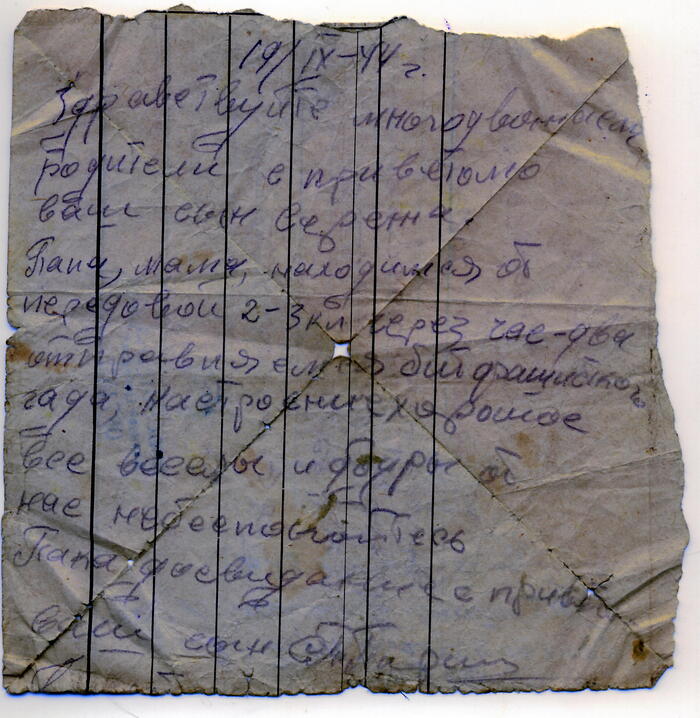 19/IX-44 г.
Здравствуйте многоуважаемы
родители с приветомо
ваш сын
Папа, мама, находимся от
передовой 2-3 кл через час-два
отправляемся бить фашиского
гада, настроение хорошое
все веселы и бодры о
нас небеспокойтесь
Папа, досвидание с приве
ваш сын